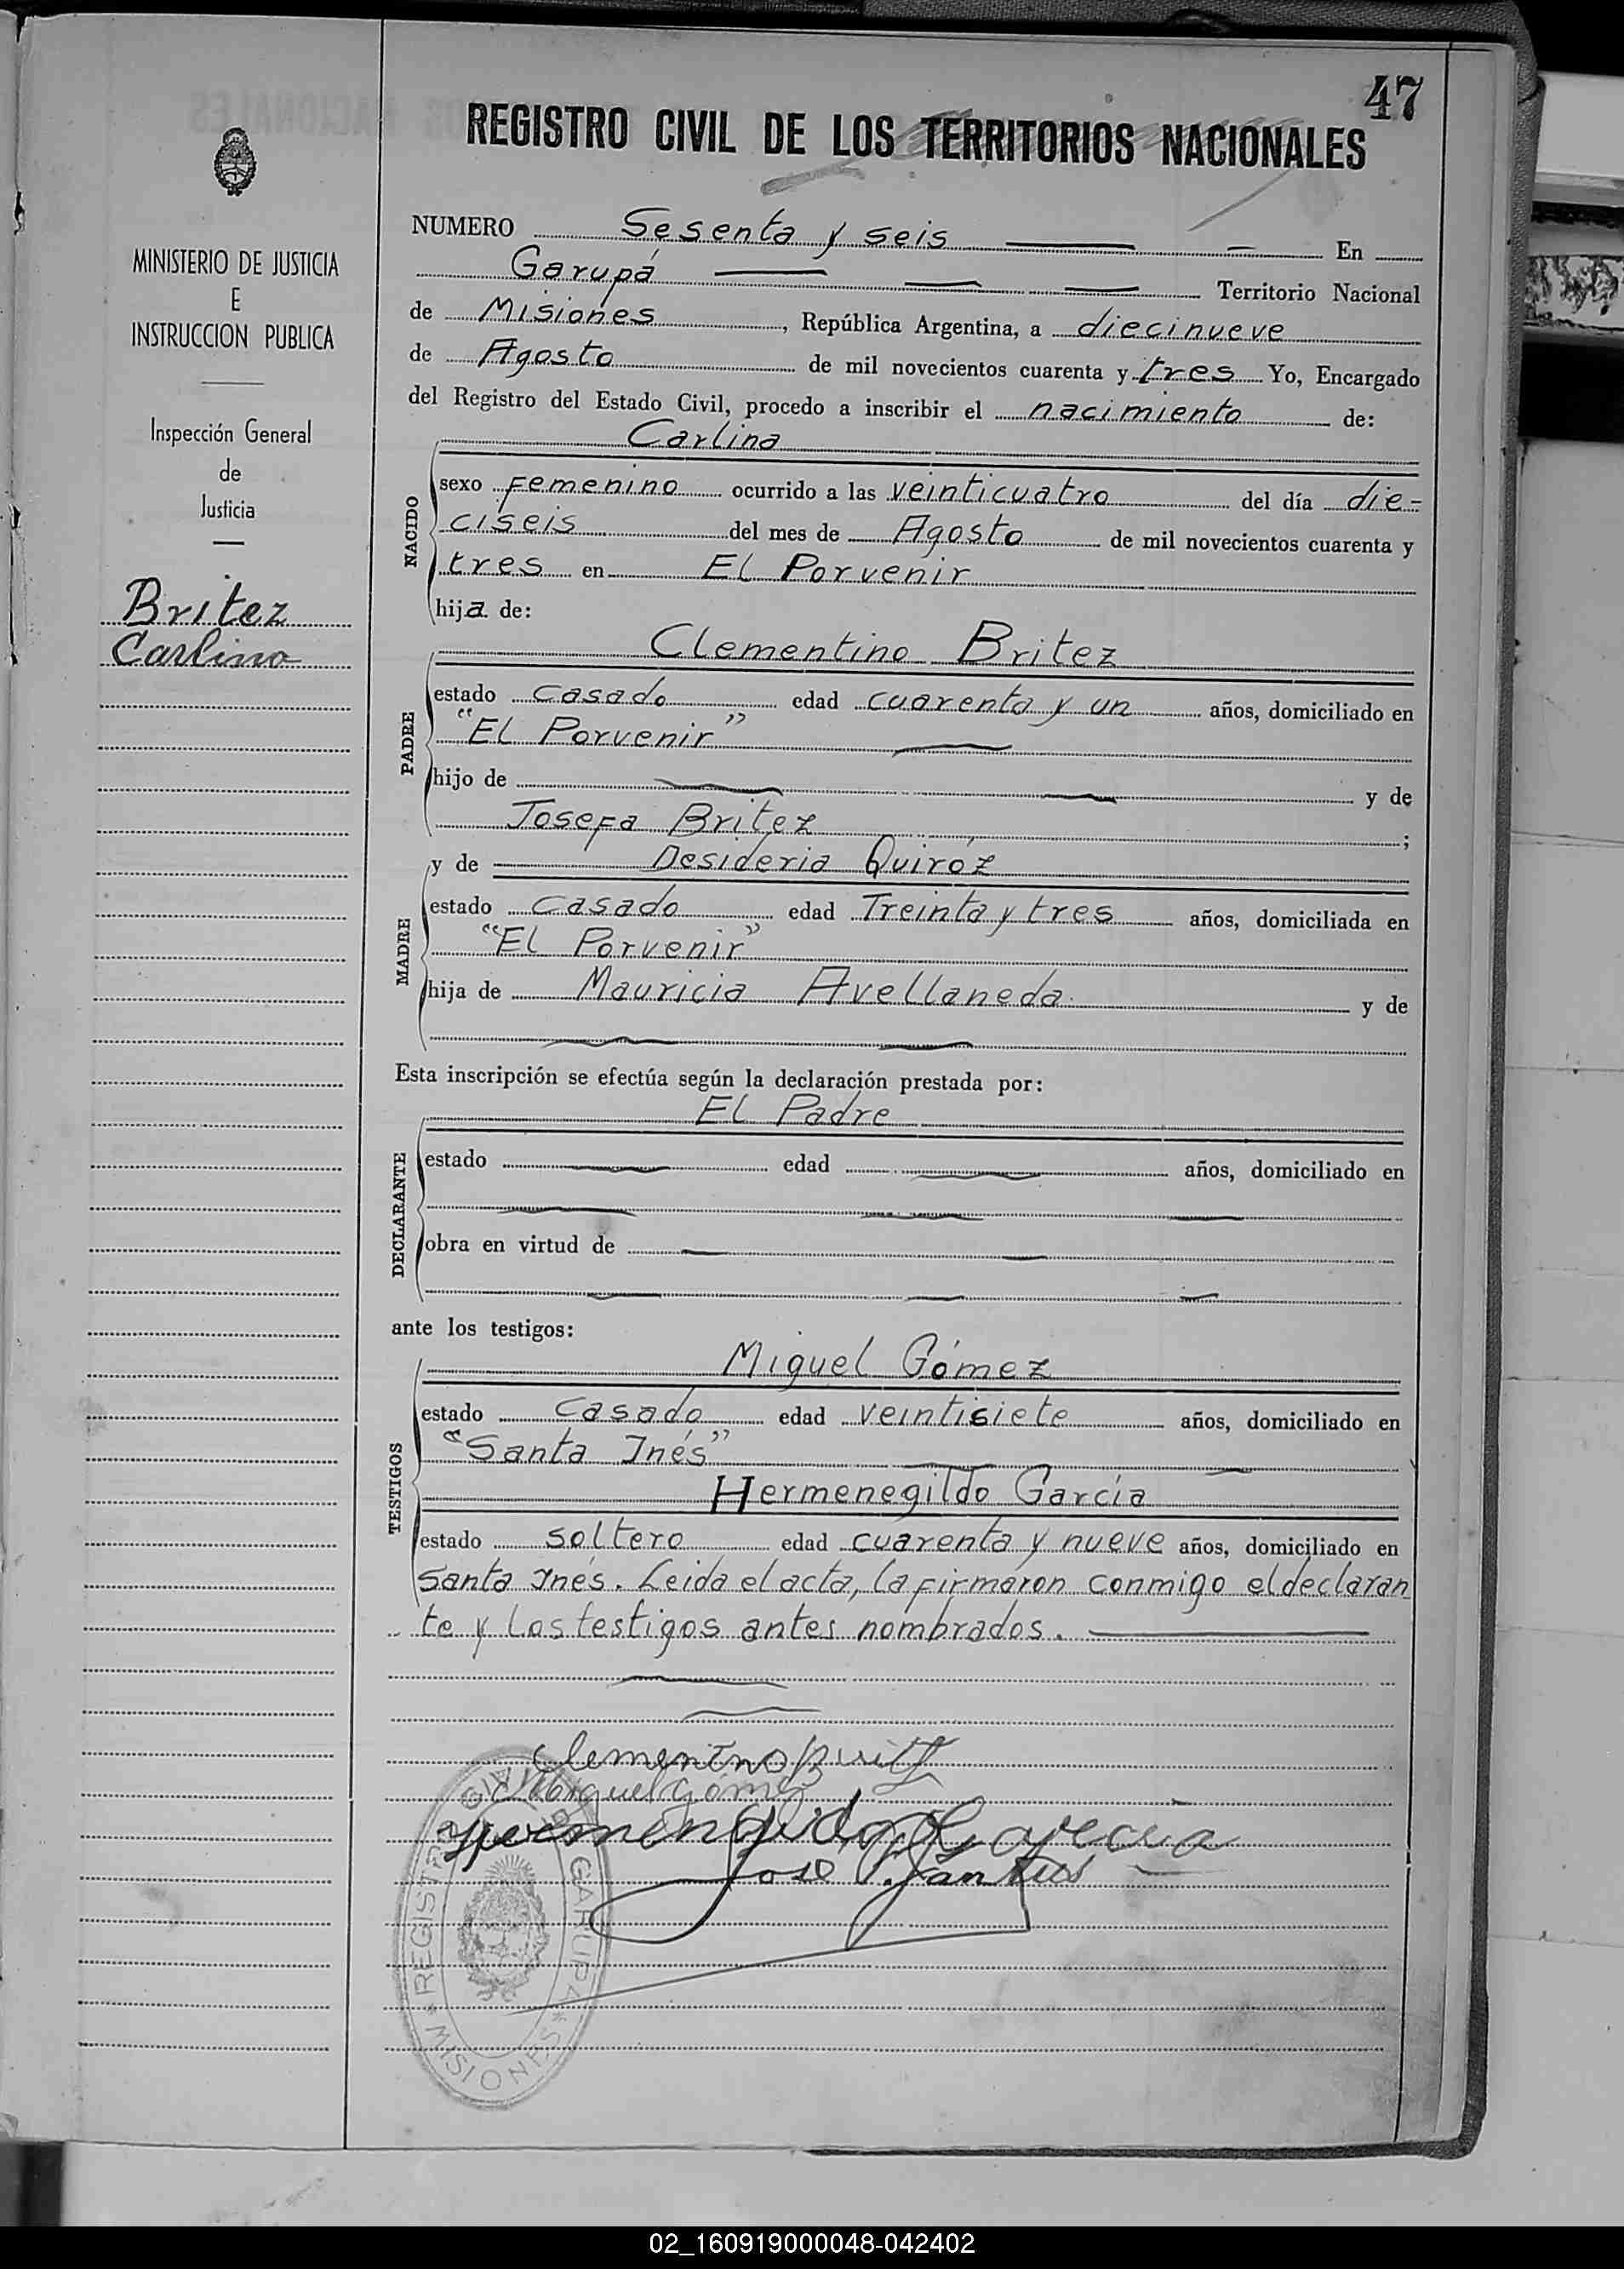 47
REGISTRO CIVIL DE LOS TERRITORIOS NACIONALES
MINISTERIO DE JUSTICIA
E
INSTRUCCION PUBLICA
Inspección General
de
Justicia
Britez
Carlina
NUMERO Sesenta y seis En
Garupá Territorio Nacional
de Misiones, República Argentina, a diecinueve
de Agosto de mil novecientos cuarenta y tres Yo, Encargado
del Registro del Estado Civil, procedo a inscribir el nacimiento de:
NACIDO
Carlina
sexo Femenino ocurrido a las veinticuatro del día die-
ciseis del mes de Agosto de mil novecientos cuarenta y
tres en El Porvenir
hija de:
PADRE
Clementino Britez
estado casado edad cuarenta y un años, domiciliado en
"El Porvenir"
hijo de y de
Josefa Britez ;
MADRE
y de Desideria Quiróz
estado casado edad Treinta y tres años, domiciliada en
"El Porvenir"
hija de Mauricia Avellaneda y de
Esta inscripción se efectúa según la declaración prestada por:
DECLARANTE
El Padre
estado edad años, domiciliado en
obra en virtud de
ante los testigos:
TESTIGOS
Miguel Gómez
estado casado edad veintisiete años, domiciliado en
"Santa Inés"
Hermenegildo García
estado soltero edad cuarenta y nueve años, domiciliado en
Santa Inés. Leida el acta, la firmaron conmigo el declaran
te y los testigos antes nombrados.
Clementino Britz
Miguel Gómez
Hermenegildo Garcia
José P. Santos
REGISTRO CIVIL GARUPA
* MISIONES *
02_160919000048-042402